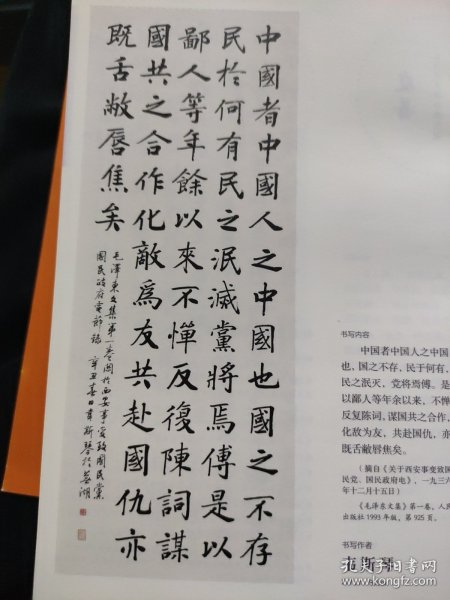 中國者中國人之中國也國之不存
民於何有民之泯滅黨將焉傅是以
鄙人等年餘以來不憚反復陳詞謀
國共之合作化敵爲友共赴國仇亦
既舌敝唇焦矣
毛澤東文集第一卷關於西安事變致國民黨
國民政府電節錄 辛丑春日韋斯琴於蕪湖
书写内容
中国者中国人之中国
也,国之不存,民于何有,
民之泯灭,党将焉傅。是
以鄙人等年余以来,不惮
反复陈词,谋国共之合作,
化敌为友,共赴国仇,亦
既舌敝唇焦矣。
(摘自《关于西安事变致国
民党、国民政府电》,一九三六
年十二月十五日)
《毛泽东文集》第一卷,人民
出版社1993年版,第925页。
书写作者
韦斯琴
孔夫子旧书网
book.kongfz.com